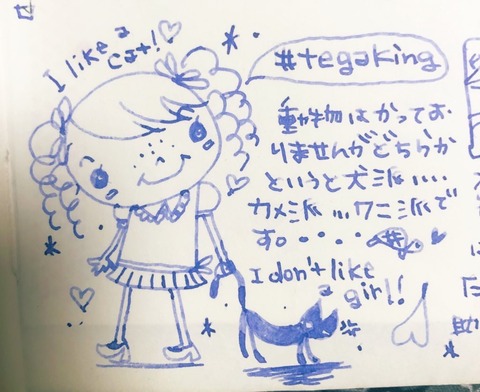 I like a
cat!
#tegaking
動物はかってお
りませんがどちらか
というと犬派....
カメ派...ワニ派で
す。・・・・
I don't like
a girl!
助